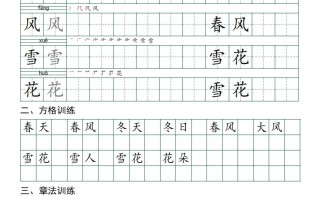 fēng
风 风 春 风
xuě
雪 雪 雪 花
huā
花 花 雪 花
二、方格训练
春 天 春 风 冬 天 冬 日 春 风 大 风
雪 花 雪 人 雪 花 花 朵
三、章法训练